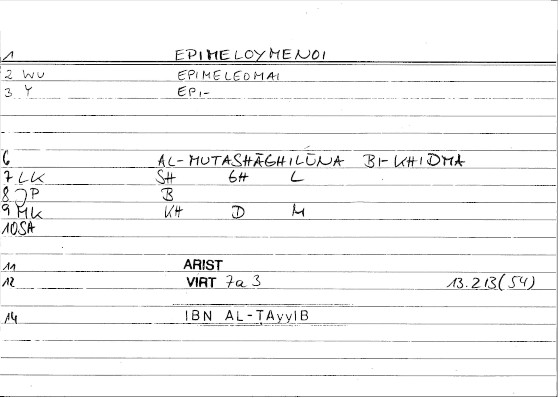 1 EPIMELOYMENOI
2 WU EPIMELEOMAI
3 Y EPI-
6 AL-MUTASHĀGHILŪNA BI-KHIDMA
7 LK SH GH L
8 JP B
9 MK KH D M
10 SA
11 ARIST
12 VIRT 7a3 13.213(54)
14 IBN AL-ṬAyyIB